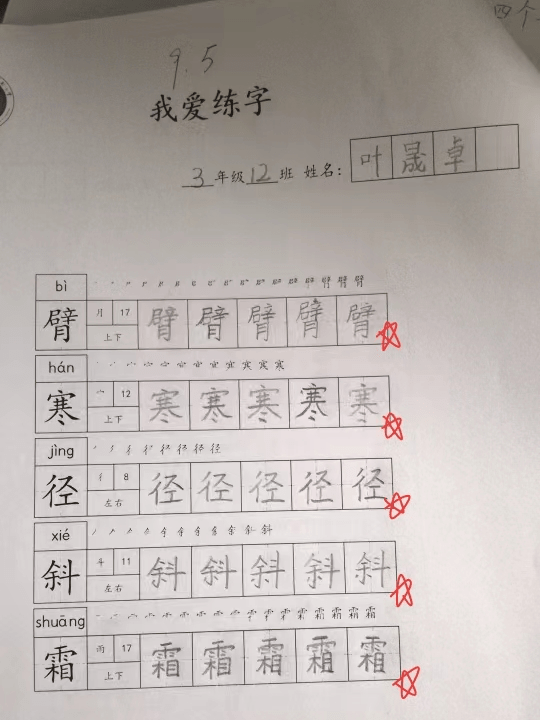 四个
9.5
我爱练字
3年级12班 姓名：叶晟卓
bì
臂 月 17 上下 臂 臂 臂 臂 臂
hán
寒 宀 12 上下 寒 寒 寒 寒 寒
jìng
径 彳 8 左右 径 径 径 径 径
xié
斜 斗 11 左右 斜 斜 斜 斜 斜
shuāng
霜 雨 17 上下 霜 霜 霜 霜 霜